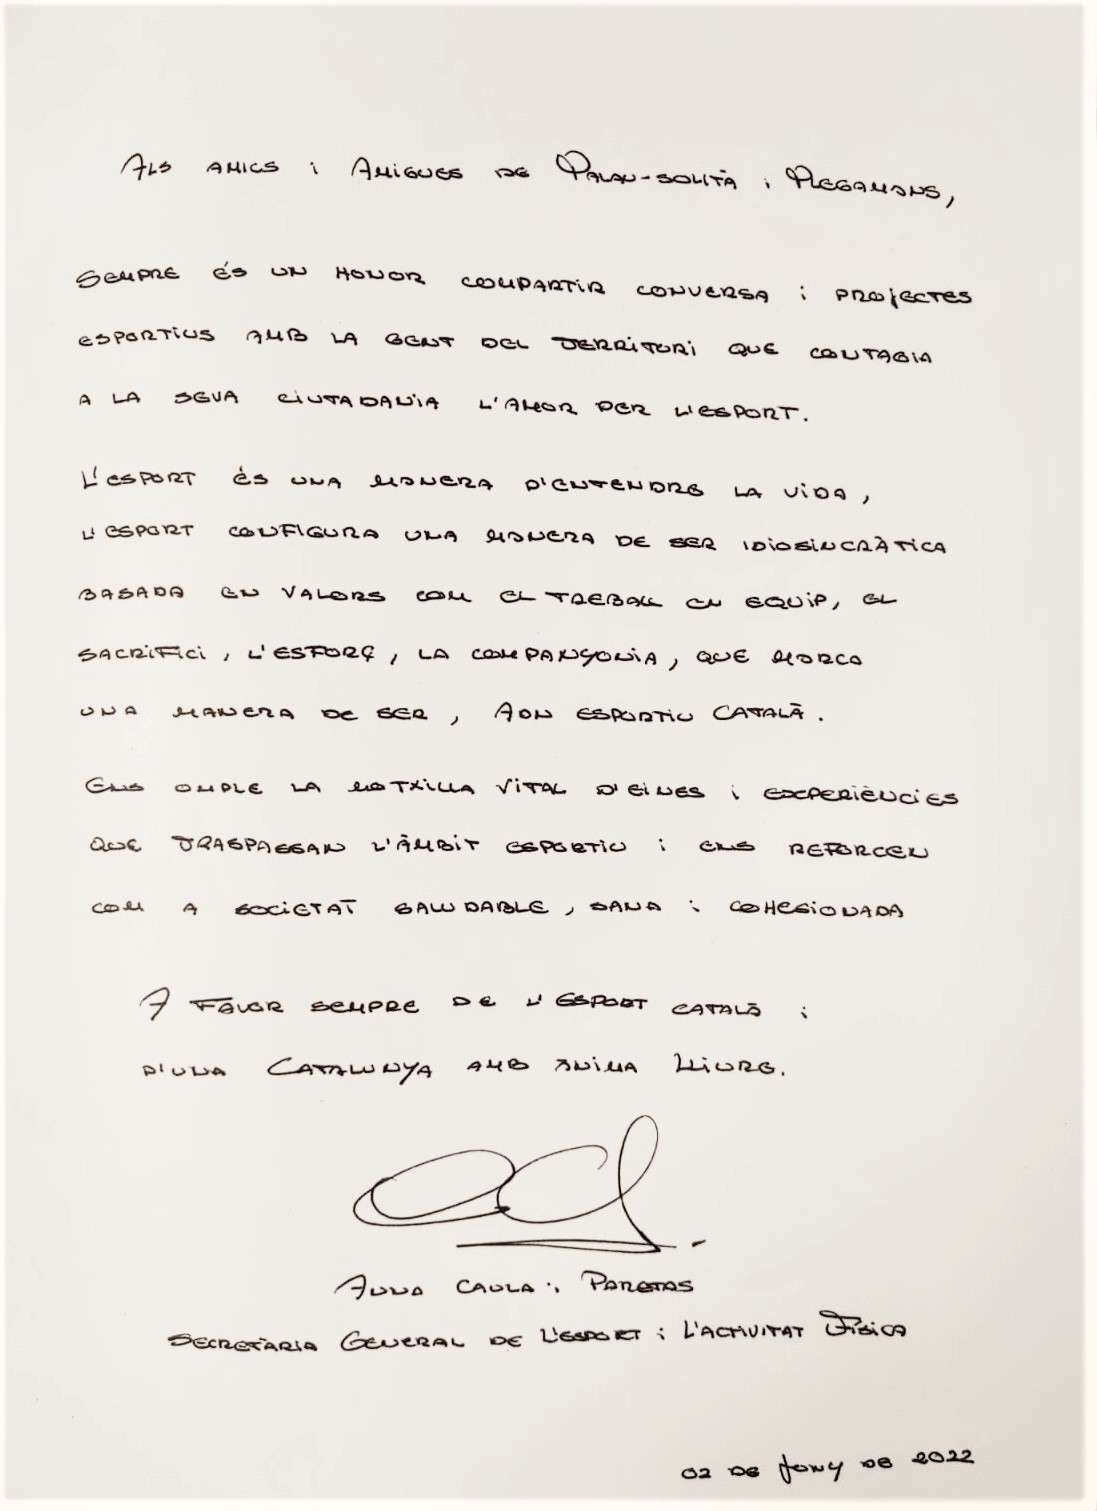 Als amics i Amigues de Palau-solità i Plegamans,
Sempre és un honor compartir conversa i projectes
esportius amb la gent del territori que contagia
a la seva ciutadania l'amor per l'esport.
L'esport és una manera d'entendre la vida,
l'esport configura una manera de ser idiosincràtica
basada en valors com el treball en equip, el
sacrifici, l'esforç, la companyonia, que marca
una manera de ser, esportiu català.
Ens omple la motxilla vital d'eines i experiències
que traspassan l'àmbit esportiu i ens reforcen
com a societat saludable, sana i cohesionada
A favor sempre de l'esport català i
d'una Catalunya amb ànima lliure.
Anna Caula i Paretas
Secretària General de l'esport i l'activitat Física
02 de juny de 2022